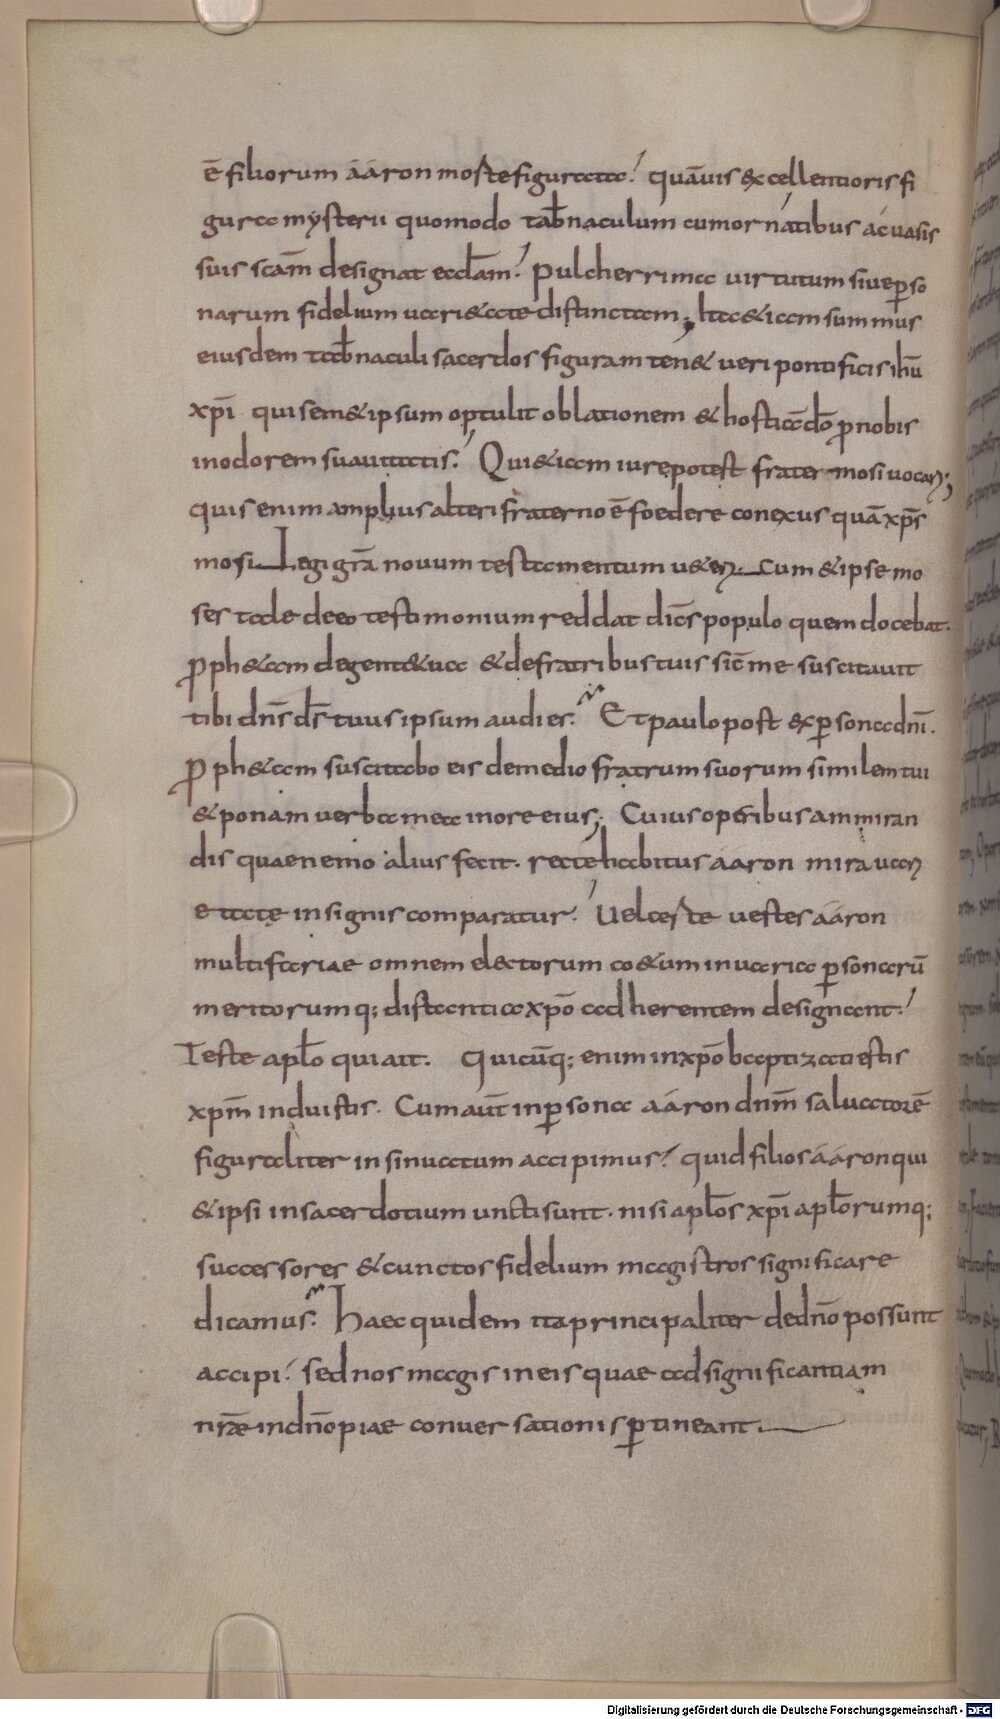 ē filiorum ááron moste figurata. quāuis excellentioris fi
gura mysterii quomodo tab̄naculum cum ornatibus ac uasis
suis scām designat eccl̄am. Pulcherrima uirtutum siue ꝑso
narum fidelium uari&ate distinctam; Ita &iam summus
eiusdem tab̄naculi sacerdos figuram ten& ueri pontificis ih̄u
xp̄i qui sem&ipsum optulit oblationem & hostiā dō ꝓ nobis
in odorem suauitatis. Qui &iam iure potest frater mosi uocari;
quis enim amplius alteri fraterno ē foedere conexus quā xp̄s
mosi. Legi gr̄a nouum testamentum u&eri. Cum & ipse mo
ses tade deeo testimonium reddat dic̄s populo quem docebat.
Proph&am de gente tua & de fratribus tuis sic̄ me suscitauit
tibi dn̄s d̄s tuus ipsum audies. Et paulo post ex ꝑsona dn̄i.
Proph&am suscitabo eis de medio fratrum suorum similem tui
& ponam uerba mea in ore eius; Cuius operibus ammiran
dis quae nemo alius fecit. recte habitus ááron mira uari
etate insignis comparatur. Vel certe uestes ááron
multifariae omnem electorum co&um in uaria ꝑsonarū
meritorumq; distantia xp̄o adherentem designant.
Teste apl̄o qui ait. Quicūq; enim in xp̄o baptizati estis
xp̄m induistis. Cum aut̄ in ꝑsona ááron dn̄m saluatorē
figuraliter insinuatum accipimus. quid filios ááron qui
& ipsi in sacerdotium uncti sunt. nisi apl̄os xp̄i apl̄orumq;
successores & cunctos fidelium magistros significare
dicamus. Haec quidem ita principaliter de dn̄o possunt
accipi. sed nos magis in eis quae ad significantiam
nr̄ae in dn̄o piae conuersationis ꝑtineant.
Digitalisierung gefördert durch die Deutsche Forschungsgemeinschaft - DFG